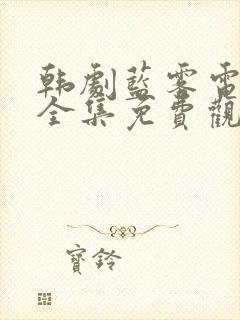 韩劇藍零電
全集免費觀
寶鈴